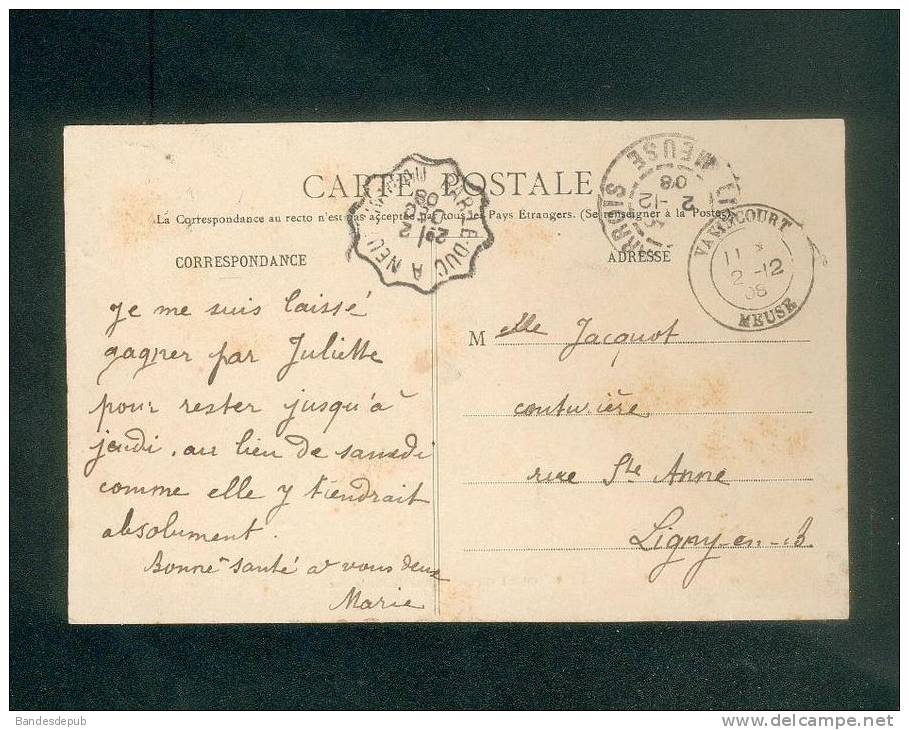 CARTE POSTALE
La Correspondance au recto n'est pas acceptée par tous les Pays Étrangers. (Se renseigner à la Poste)
CORRESPONDANCE
ADRESSE
BAR-LE-DUC A NEUF
2º
08
MEUSE
2 -12
08
VAVINCOURT
11
2 -12
08
MEUSE
Je me suis laissé
gagner par Juliette
pour rester jusqu'à
jeudi. au lieu de samedi
comme elle y tiendrait
absolument.
Bonne santé à vous deux
Marie
Melle Jacquot
couturière
rue Ste Anne
Ligny-en-B
Bandesdepub
www.delcampe.net